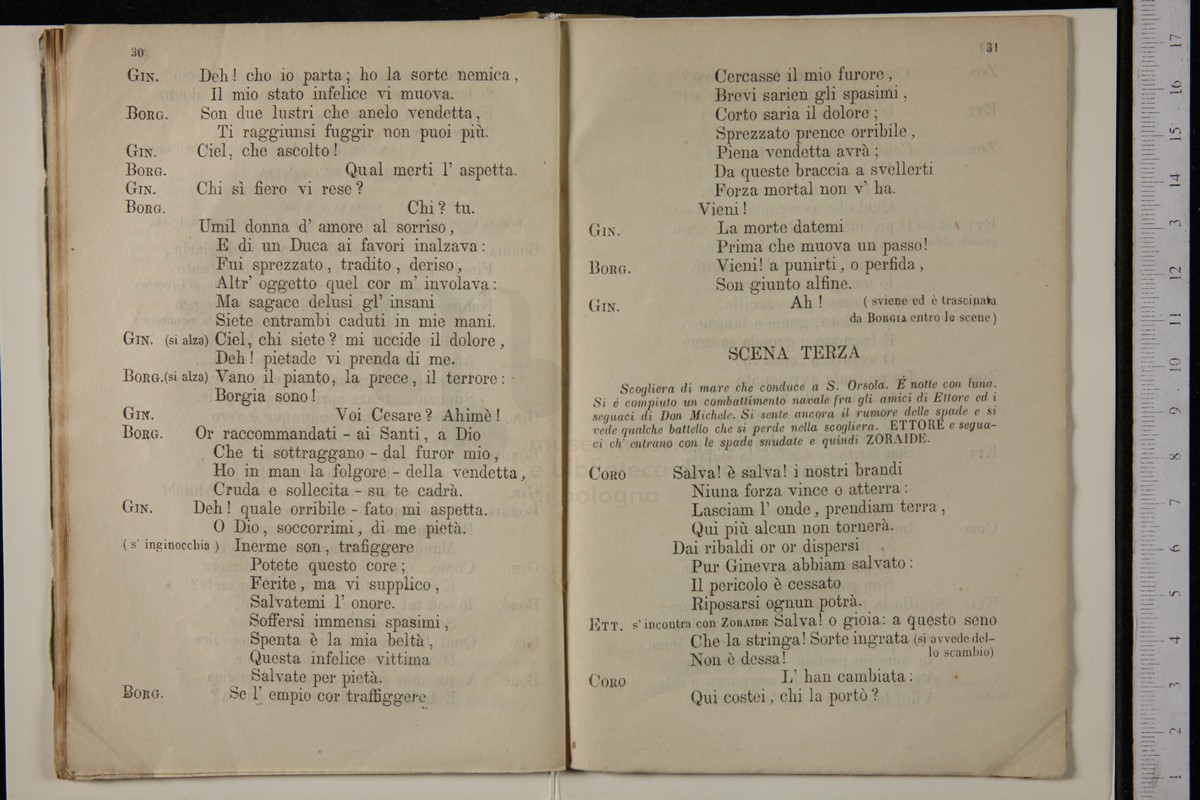 30
GIN. Deh! cho io parta; ho la sorte nemica,
Il mio stato infelice vi muova.
BORG. Son due lustri che anelo vendetta,
Ti raggiunsi fuggir non puoi più.
GIN. Ciel, che ascolto!
BORG. Qual merti l' aspetta.
GIN. Chi sì fiero vi rese?
BORG. Chi? tu.
Umil donna d' amore al sorriso,
E di un Duca ai favori inalzava:
Fui sprezzato, tradito, deriso,
Altr' oggetto quel cor m' involava:
Ma sagace delusi gl' insani
Siete entrambi caduti in mie mani.
GIN. (si alza) Ciel, chi siete? mi uccide il dolore,
Deh! pietade vi prenda di me.
BORG.(si alza) Vano il pianto, la prece, il terrore:
Borgia sono!
GIN. Voi Cesare? Ahimè!
BORG. Or raccommandati - ai Santi, a Dio
Che ti sottraggano - dal furor mio,
Ho in man la folgore - della vendetta,
Cruda e sollecita - su te cadrà.
GIN. Deh! quale orribile - fato mi aspetta.
O Dio, soccorrimi, di me pietà.
(s' inginocchia) Inerme son, trafiggere
Potete questo core;
Ferite, ma vi supplico,
Salvatemi l' onore.
Soffersi immensi spasimi,
Spenta è la mia beltà,
Questa infelice vittima
Salvate per pietà.
BORG. Se l' empio cor traffiggere
31
Cercasse il mio furore,
Brevi sarien gli spasimi,
Corto saria il dolore;
Sprezzato prence orribile,
Piena vendetta avrà;
Da queste braccia a svellerti
Forza mortal non v' ha.
Vieni!
GIN. La morte datemi
Prima che muova un passo!
BORG. Vieni! a punirti, o perfida,
Son giunto alfine.
GIN. Ah! (sviene ed è trascinata
da BORGIA entro le scene)
SCENA TERZA
Scogliera di mare che conduce a S. Orsola. É notte con luna.
Si è compiuto un combattimento navale fra gli amici di Ettore ed i
seguaci di Don Michele. Si sente ancora il rumore delle spade e si
vede qualche battello che si perde nella scogliera. ETTORE e segua-
ci ch' entrano con le spade snudate e quindi ZORAIDE.
CORO Salva! è salva! i nostri brandi
Niuna forza vince o atterra:
Lasciam l' onde, prendiam terra,
Qui più alcun non tornerà.
Dai ribaldi or or dispersi
Pur Ginevra abbiam salvato:
Il pericolo è cessato
Riposarsi ognun potrà.
ETT. s' incontra con ZORAIDE Salva! o gioia: a questo seno
Che la stringa! Sorte ingrata (si avvede del-
Non è dessa! lo scambio)
CORO L' han cambiata:
Qui costei, chi la portò?